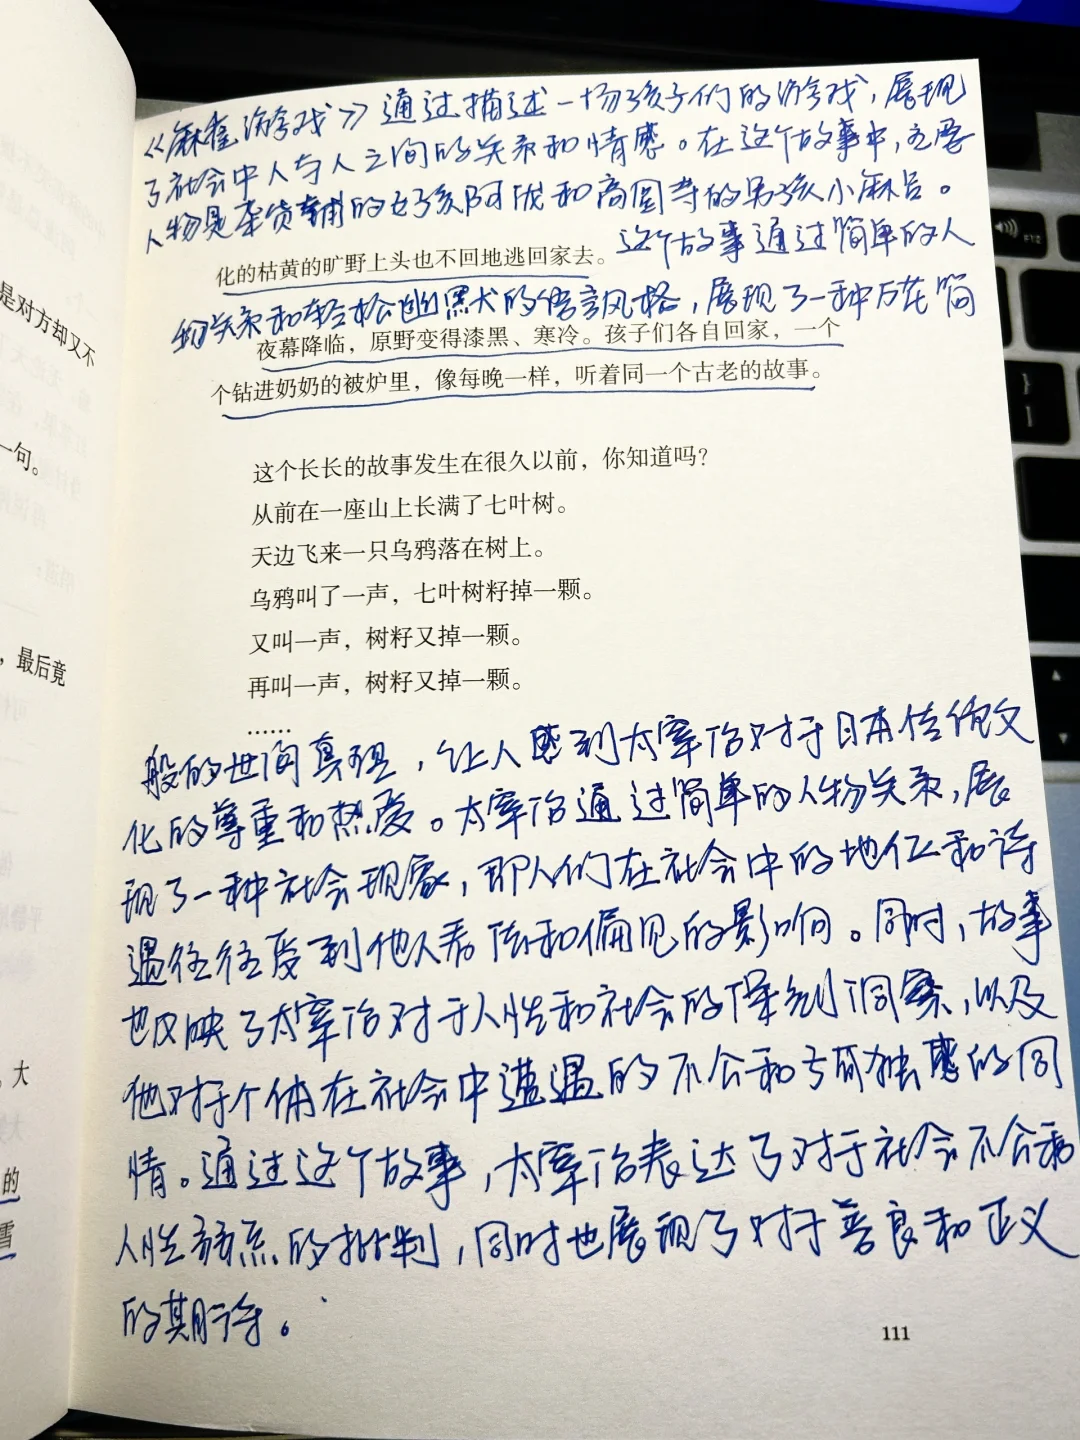 《麻雀游戏》通过描述一场孩子们的游戏，展现
了社会中人与人之间的关系和情感。在这个故事中，主要
人物是杂货铺的女孩阿成和高圆寺的男孩小麻吕。
化的枯黄的旷野上头也不回地逃回家去。
这个故事通过简单的人
物关系和轻松幽黑犬的语言风格，展现了一种万花筒
夜幕降临，原野变得漆黑、寒冷。孩子们各自回家，一个
个钻进奶奶的被炉里，像每晚一样，听着同一个古老的故事。
这个长长的故事发生在很久以前，你知道吗？
从前在一座山上长满了七叶树。
天边飞来一只乌鸦落在树上。
乌鸦叫了一声，七叶树籽掉一颗。
又叫一声，树籽又掉一颗。
再叫一声，树籽又掉一颗。
……
般的世间真理，让人感到太宰治对于日本传统文
化的尊重和热爱。太宰治通过简单的人物关系，展
现了一种社会现象，即人们在社会中的地位和待
遇往往受到他人看法和偏见的影响。同时，故事
也反映了太宰治对于人性和社会的深刻洞察，以及
他对于个体在社会中遭遇的不公和孤独感的同
情。通过这个故事，太宰治表达了对于社会不公和
人性的批判，同时也展现了对于善良和正义
的期待。
111
是对方却又不
一句。
，最后竟
。大
的
雪